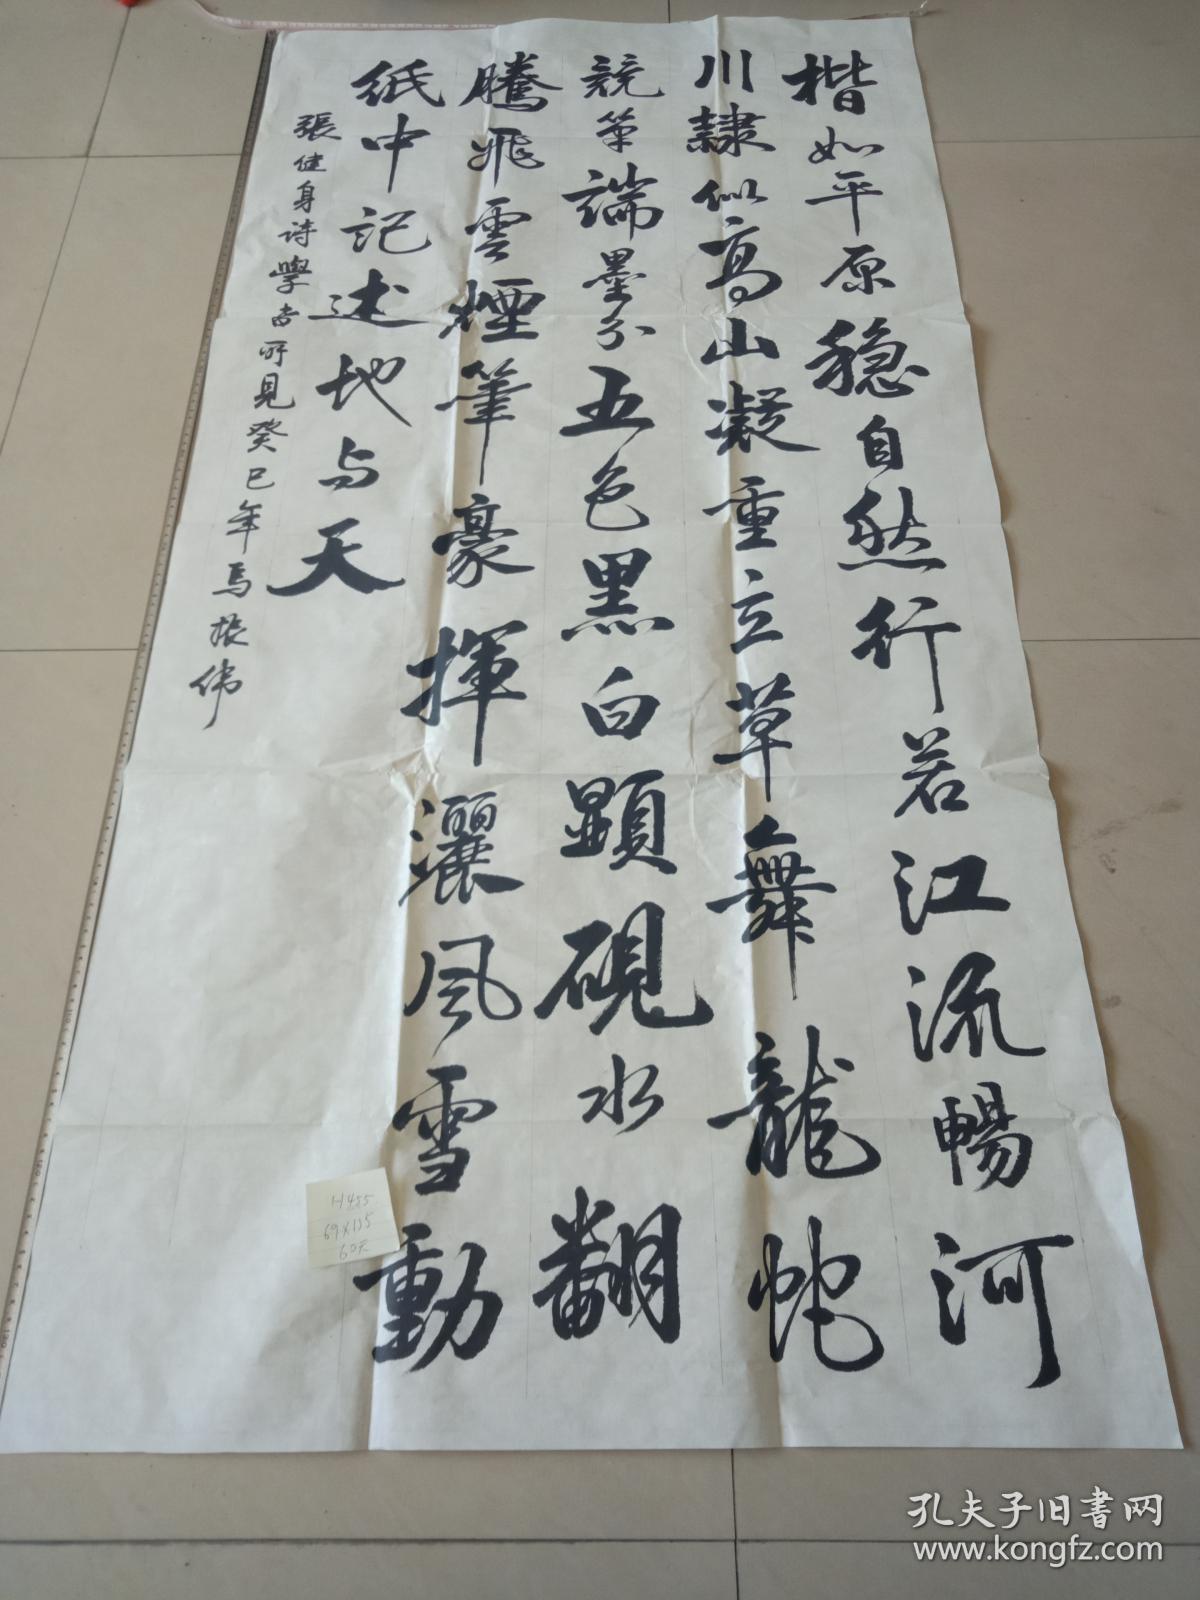 楷如平原穏自然行若江流暢河
川隷似高山凝重立草舞龍蛇
競筆端墨分五色黑白顕硯水翻
騰飛雲煙筆豪揮灑风雪動
紙中记述地与天
張健身诗學书所見癸巳年马振伟
H455
69x135
60元
孔夫子旧書网
www.kongfz.com